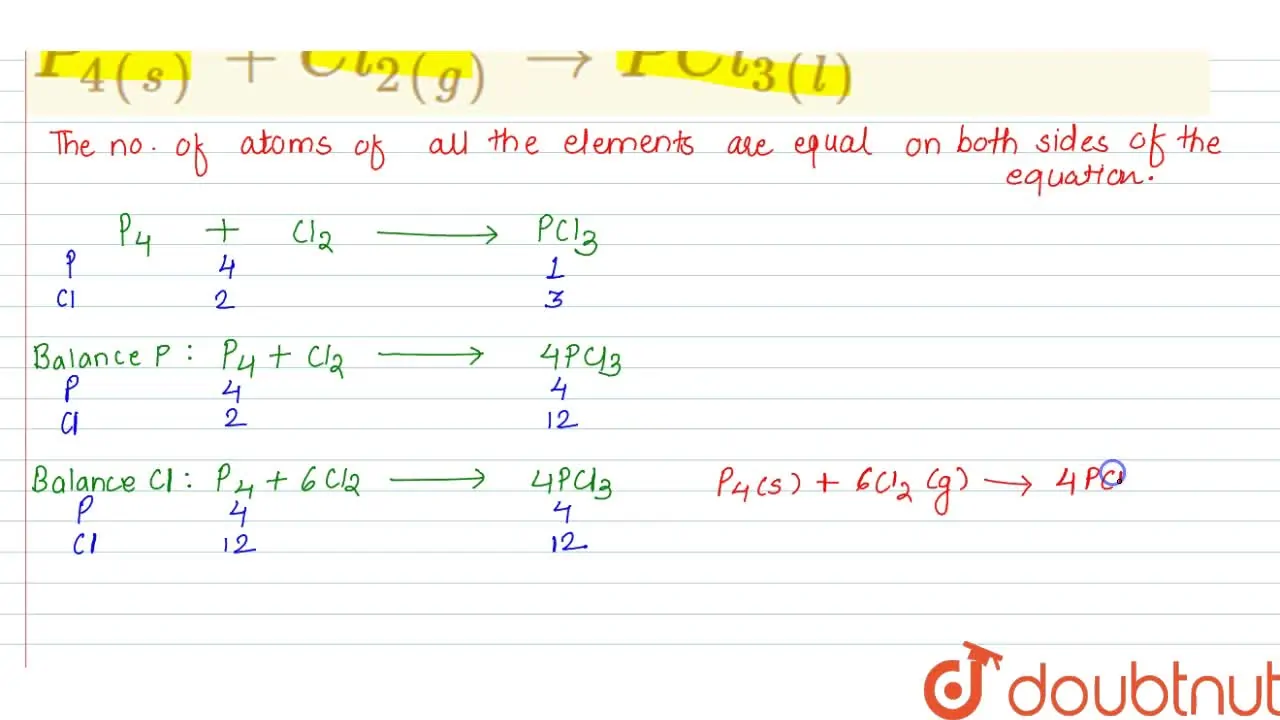 P₄(s) + Cl₂(g) → PCl₃(l)
The no. of atoms of all the elements are equal on both sides of the
equation.
P₄ + Cl₂ ⟶ PCl₃
P 4 1
Cl 2 3
Balance P : P₄ + Cl₂ ⟶ 4PCl₃
P 4 4
Cl 2 12
Balance Cl : P₄ + 6Cl₂ ⟶ 4PCl₃ P₄(s) + 6Cl₂ (g) ⟶ 4PCl
P 4 4
Cl 12 12
doubtnut